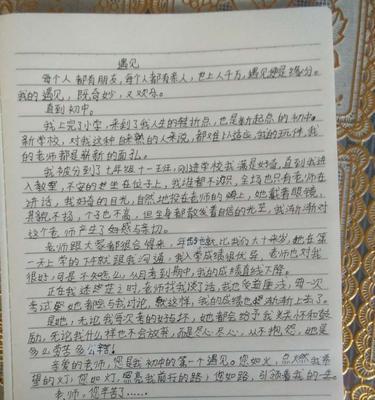 遇见
每个人都有朋友,每个人都有亲人,世上人千万,遇见便是缘分。
我的遇见,既奇妙,又欢乐。
直到初中。
我上完了小学,来到了我人生的转折点,也是新起点的初中。
新学校,对我这种的人来说,都难以适应,我的玩伴,我
的老师都是崭新的面孔。
我被分到了七年级十一班,刚进学校我满是好奇,直到我进
入教室,不安的坐在位子上,我谁都不认识,全场也只有老师在
讲话,我好奇的目光,自然地投在老师的身上,她戴着眼镜,
其貌不扬,个子也不高,但全身都散发着自信的光芒,我渐渐对
这个老师产生了好感与亲切。
老师跟大家都很合得来,年龄也就比我们大十来岁,她在第
一天上学的下午就跟我沟通,我入学成绩很优异,老师也对我
很好,可是不知怎么,从月考到期中,我的成绩直线下降。
正在我迷茫之时,老师找我谈了话,我也没荒废法,每一次
考试要她都会与我讨论,就这样,我的成绩也渐渐上去了。
是她,无论我每次考的好坏,她都会给予我关怀和鼓
励,无论我什么样也不会放弃,而是尽心尽心,从不抱怨,她是
多么辛苦多么
亲爱的老师,您是我初中的第一个遇见。您如火,点燃我希
望的灯;您如灯,照亮我前行的路;您如路,引领着我的一生。
老师,您辛苦了……